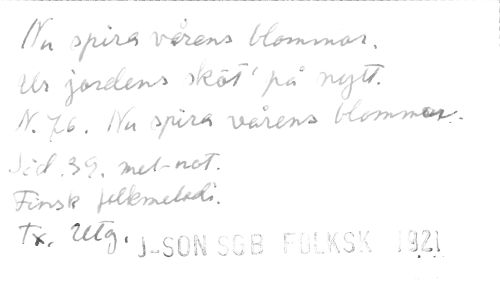 Nu spira vårens blommor.
Ur jordens sköt' på nytt.
N. 76. Nu spira vårens blommor.
Sid. 39. mel-not.
Finsk folkmelodi.
Tx. Utg. J-SON SGB FOLKSK 1921